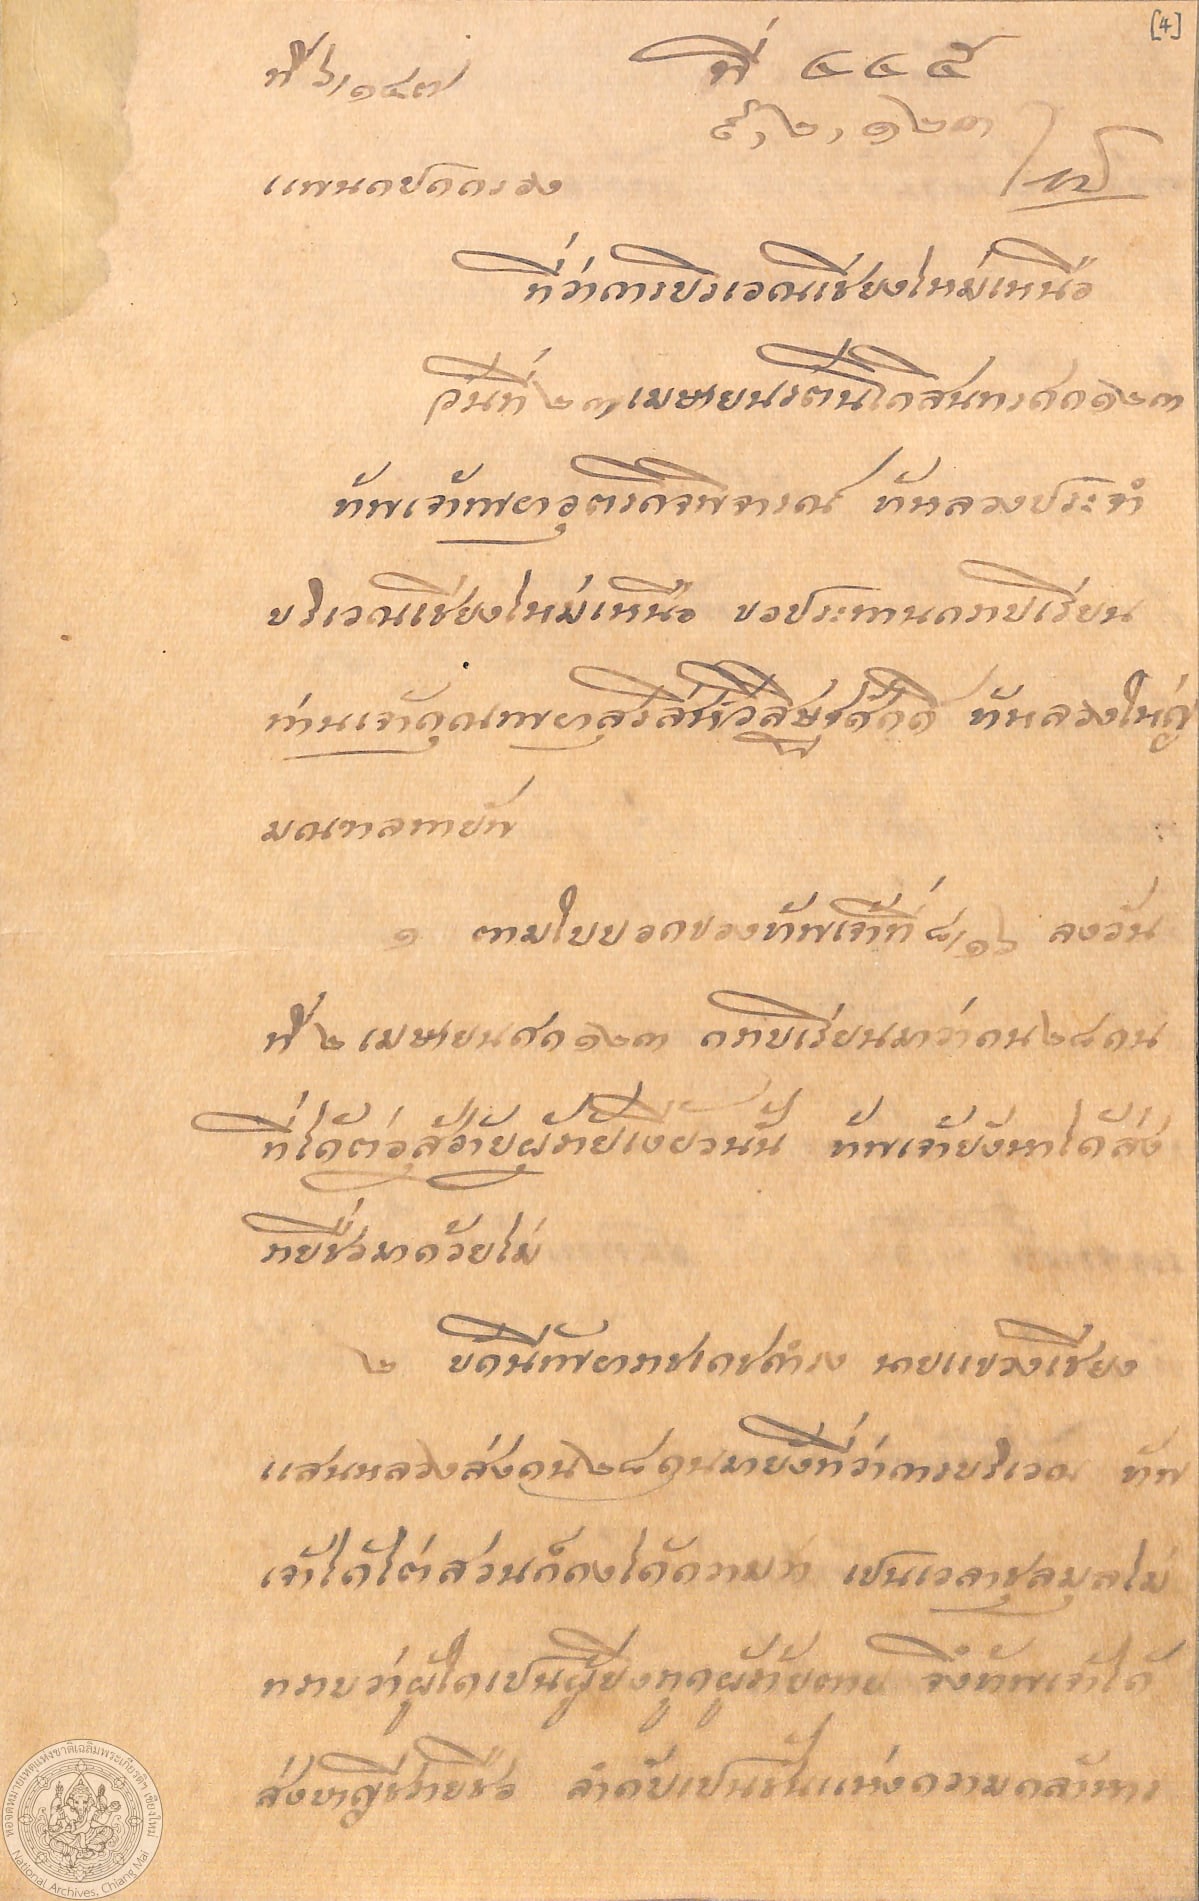 [4]
ที่ ๖/๑๔๗
ที่ ๔๔๕
๙, ๒, ๑๒๓
แพนกปกครอง
ที่ว่าการบริเวณเชียงใหม่เหนือ
วันที่ ๒๗ เมษายน รัตนโกสินทรศก ๑๒๓
ข้าพเจ้าพยาอุตรกิจพิจารณ์ ข้าหลวงประจำ
บริเวณเชียงใหม่เหนือ ขอประทานกราบเรียน
ท่านเจ้าคุณพยาสุรสีห์วิสิษฐศักดิ์ ข้าหลวงใหญ่
มณฑลพายัพ
๑ ตามใบบอกของข้าพเจ้าที่ ๘/๑๖ ลงวัน
ที่ ๒ เมษายน ศก ๑๒๓ กราบเรียนมาว่าคน ๒๘ คน
ที่ได้ต่อสู้อ้ายผู้ร้ายเงี้ยวนั้น ข้าพเจ้ายังหาได้ส่ง
รายชื่อมาด้วยไม่
๒ บัดนี้พยาราชเดชดำรง นายแขวงเชียง
แสนหลวงส่งคน ๒๘ คนมายังที่ว่าการบริเวณ ข้าพ
เจ้าได้ไต่สวนก็คงได้ความว่า เปนเวลาชุลมุลไม่
ทราบว่าผู้ใดเปนผู้ยิงถูกผู้ร้ายตาย จึงข้าพเจ้าได้
ส่งบาญชีรายชื่อ ลำดับเปนชั้นแห่งความกล้าหาร
หอจดหมายเหตุแห่งชาติเฉลิมพระเกียรติฯ เชียงใหม่
National Archives, Chiang Mai